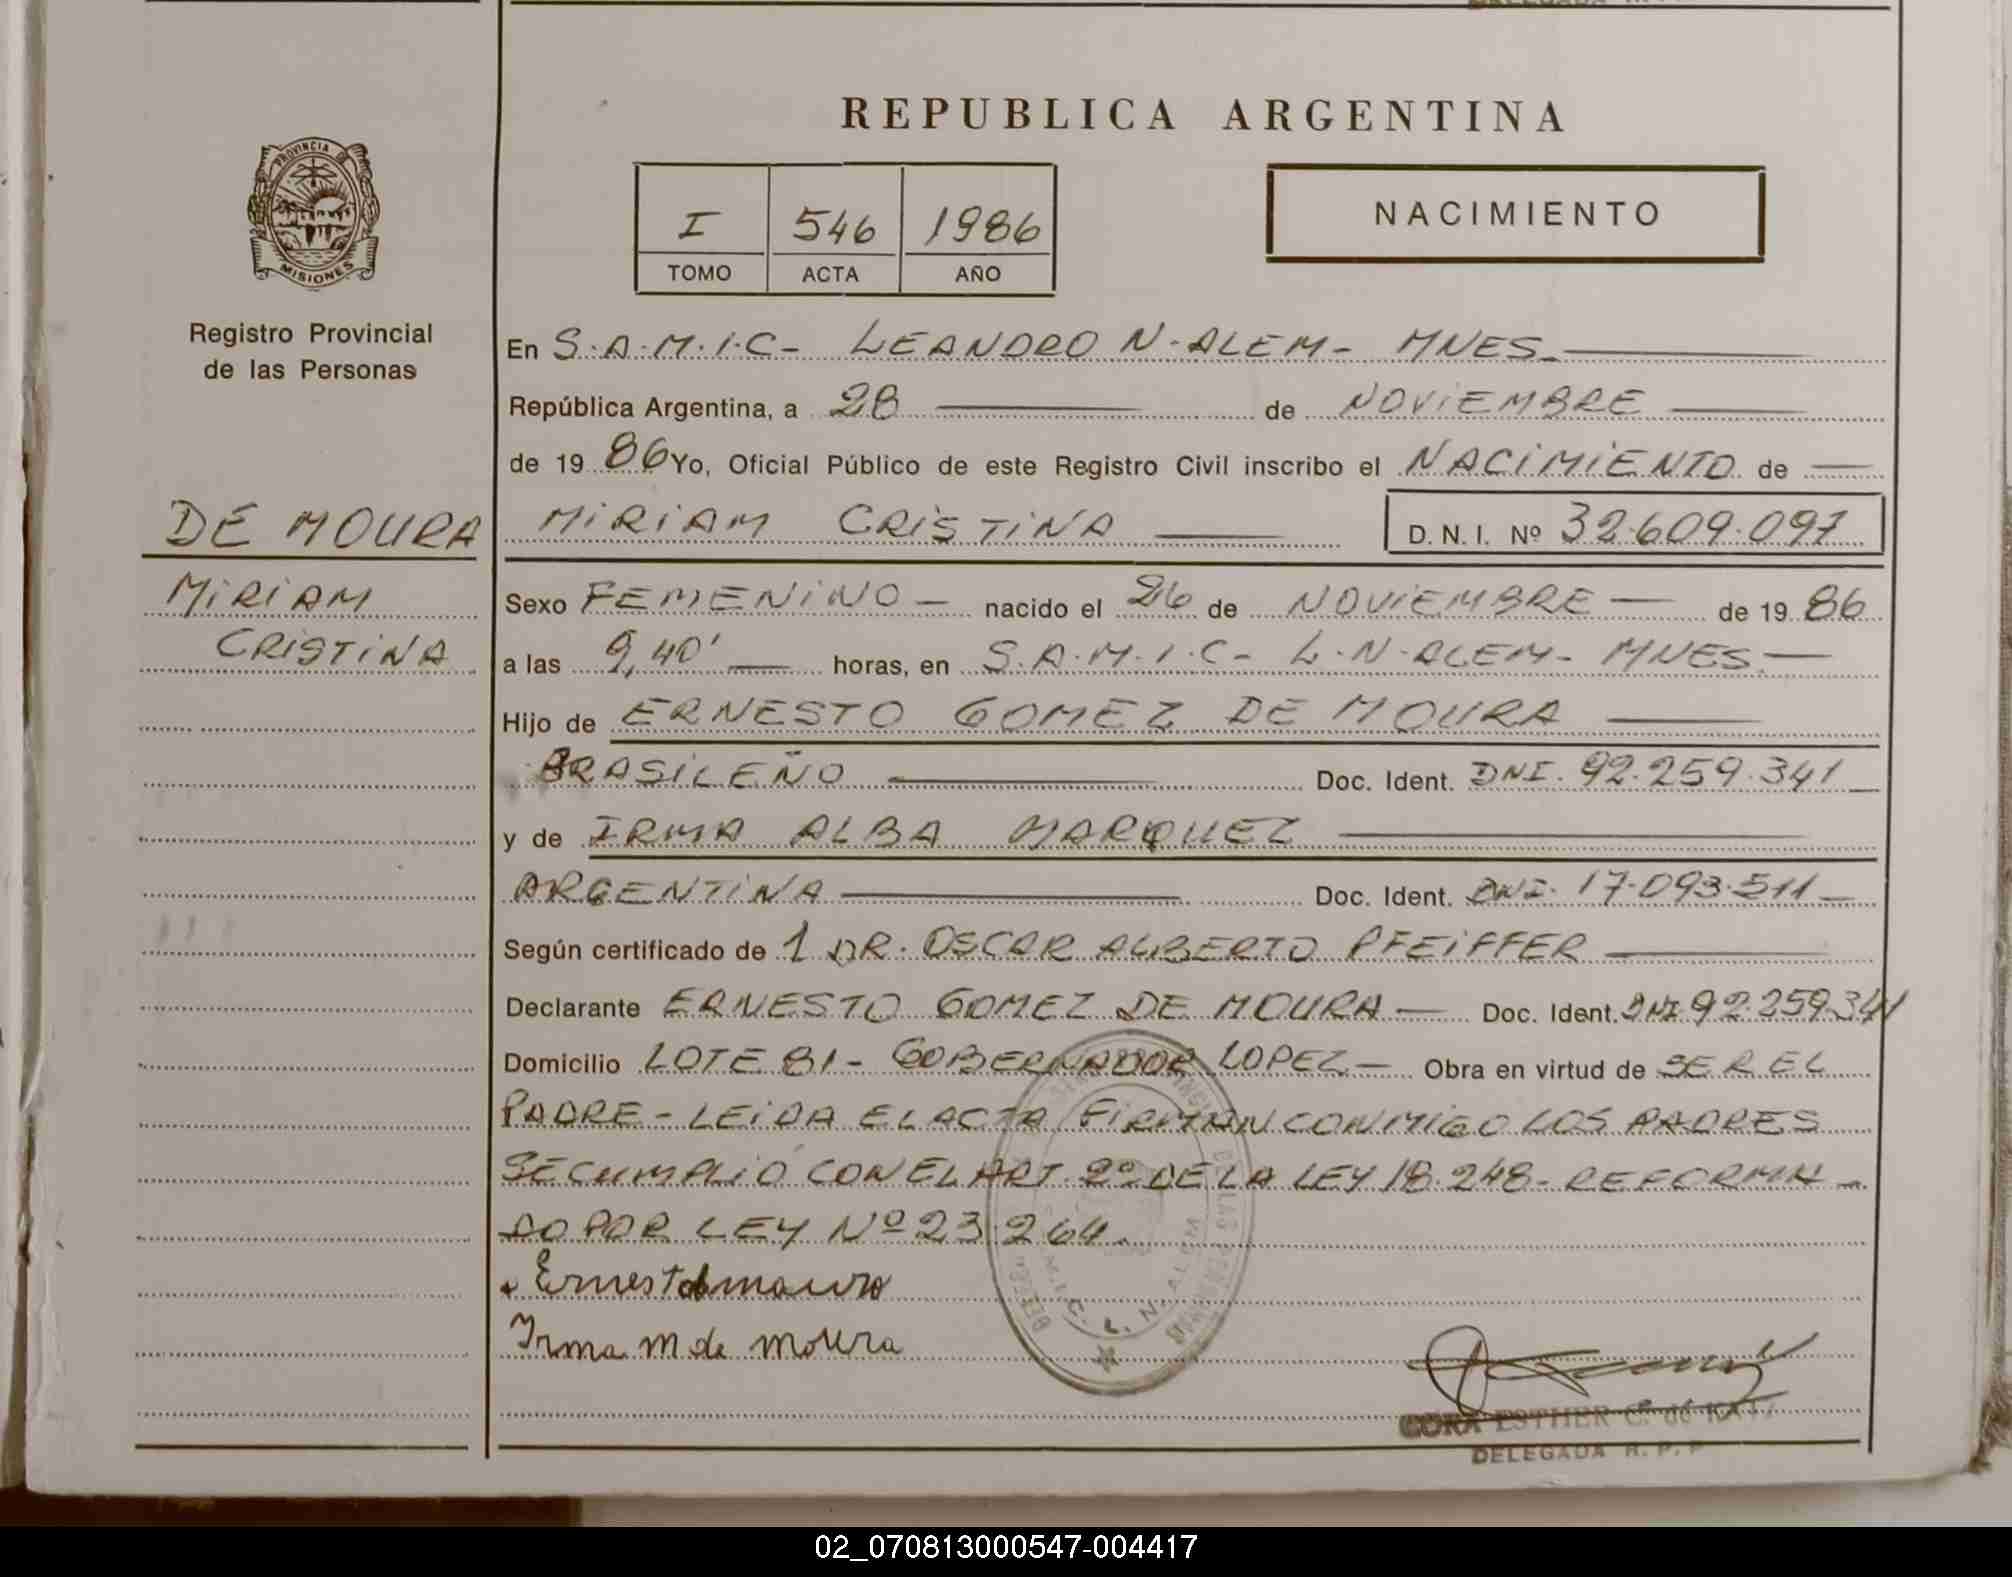 REPUBLICA ARGENTINA
PROVINCIA DE
MISIONES
I 546 1986
TOMO ACTA AÑO
NACIMIENTO
Registro Provincial
de las Personas
En S.A.M.I.C- LEANDRO N-ALEM- MNES-
República Argentina, a 28 de NOVIEMBRE
de 19 86 Yo, Oficial Público de este Registro Civil inscribo el NACIMIENTO de
DE MOURA
MIRIAM CRISTINA D. N. I. Nº 32.609.097
MIRIAM
CRISTINA
Sexo FEMENINO - nacido el 26 de NOVIEMBRE - de 19 86
a las 9,40' horas, en S.A.M.I.C- L.N-ALEM- MNES-
Hijo de ERNESTO GOMEZ DE MOURA
BRASILEÑO Doc. Ident. DNI. 92.259.341
y de IRMA ALBA MARQUEZ
ARGENTINA Doc. Ident. DNI. 17.093.511-
Según certificado de 1 DR. OSCAR ALBERTO PFEIFFER
Declarante ERNESTO GOMEZ DE MOURA - Doc. Ident. DNI 92.259.341
Domicilio LOTE 81- GOBERNADOR LOPEZ- Obra en virtud de SER EL
PADRE - LEIDA EL ACTA FIRMAN CONMIGO LOS PADRES
SE CUMPLIO CON EL ART. 2º DE LA LEY 18.248- REFORMA-
DO POR LEY Nº 23.264.
Ernesto demoura
Irma M de Moura
S.A.M.I.C. L. N. ALEM
CORA ESTHER C. de KATZ
DELEGADA R. P. P
02_070813000547-004417